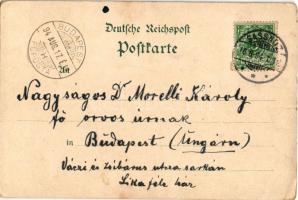 Deutsche Reichspost
Postkarte
BUDAPEST
94 AUG 17
An
Nagyságos Dr Morelli Károly
fő orvos úrnak
in Budapest (Ungárn)
Váczi és zsibárus utcza sarkán
Lika féle ház